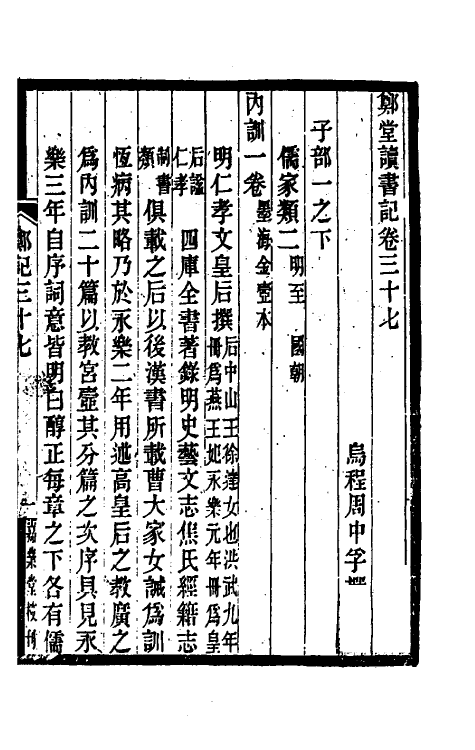 鄭堂讀書記卷三十七
烏程周中孚撰
子部一之下
儒家類二 明至 國朝
內訓一卷 墨海金壺本
明仁孝文皇后撰 后中山王徐達女也洪武九年
冊為燕王妃永樂元年冊為皇
后諡
仁孝 四庫全書著錄明史藝文志焦氏經籍志
制書
類 俱載之后以後漢書所載曹大家女誡為訓
恆病其略乃於永樂二年用述高皇后之教廣之
為內訓二十篇以教宮壼其分篇之次序具見永
樂三年自序詞意皆明白醇正每章之下各有儒
鄭記三十七
一
嘉業堂校刊